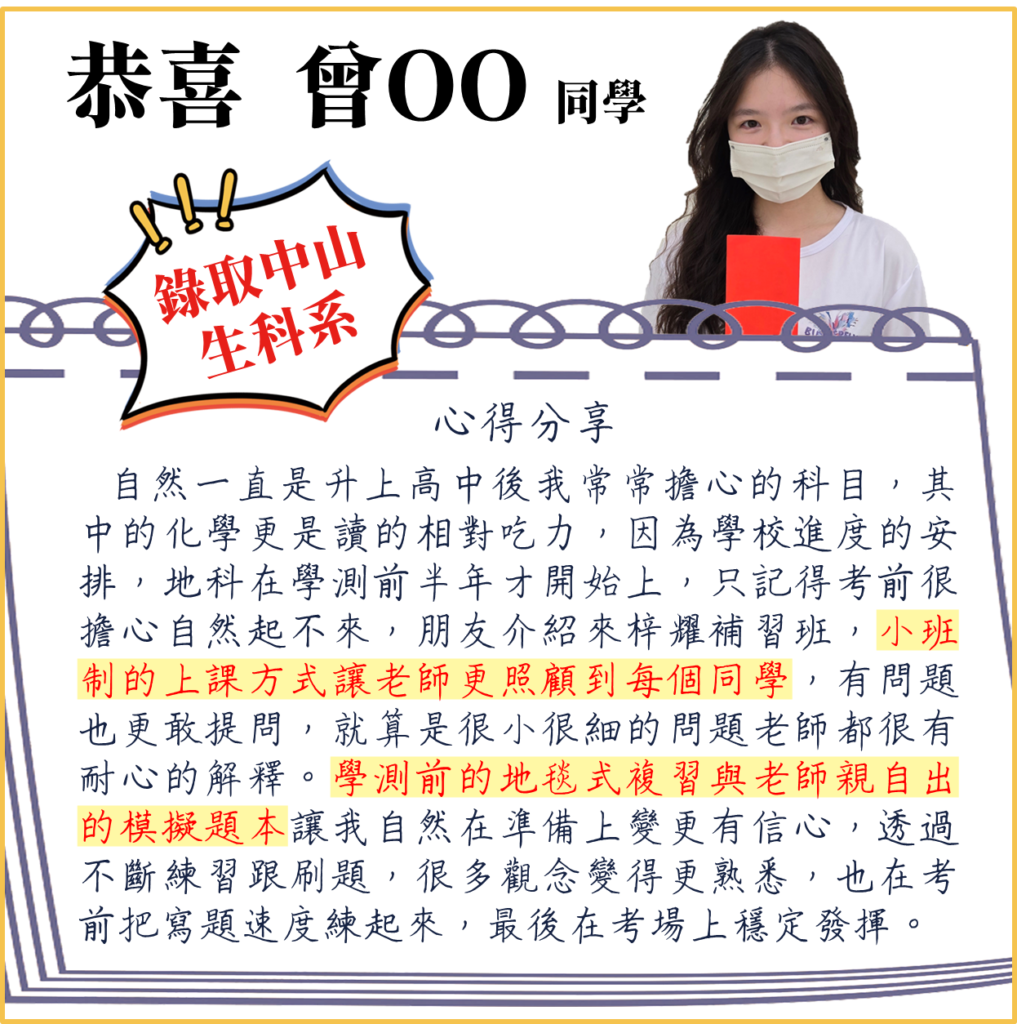 恭喜 曾OO 同學
錄取中山
生科系
心得分享
自然一直是升上高中後我常常擔心的科目，其
中的化學更是讀的相對吃力，因為學校進度的安
排，地科在學測前半年才開始上，只記得考前很
擔心自然起不來，朋友介紹來梓耀補習班，小班
制的上課方式讓老師更照顧到每個同學，有問題
也更敢提問，就算是很小很細的問題老師都很有
耐心的解釋。學測前的地毯式複習與老師親自出
的模擬題本讓我自然在準備上變更有信心，透過
不斷練習跟刷題，很多觀念變得更熟悉，也在考
前把寫題速度練起來，最後在考場上穩定發揮。